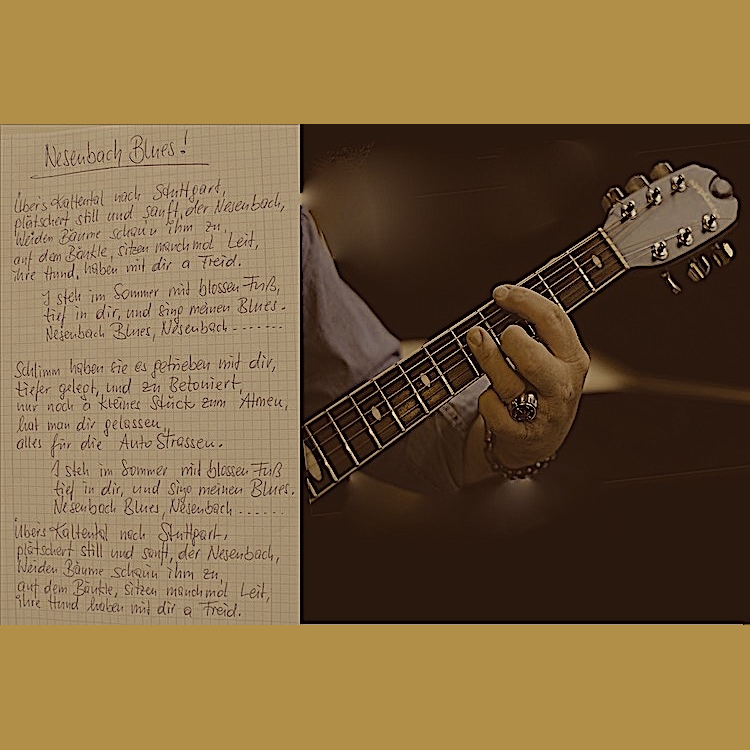 Nesenbach Blues!
Übers Kaltental nach Stuttgart,
plätschert still und sanft, der Nesenbach,
Weiden Bäume schau'n ihm zu,
auf dem Bänkle, sitzen manchmal Leit,
ihre Hund, haben mit dir a Freid.
I steh im Sommer mit blossen Fuß,
tief in dir, und sing meinen Blues.
Nesenbach Blues, Nesenbach -------
Schlimm haben sie es getrieben mit dir,
tiefer gelegt, und zu Betoniert,
nur noch a kleines Stück zum Atmen,
hat man dir gelassen,
alles für die Auto Strassen.
I steh im Sommer mit blossen Fuß
tief in dir, und sing meinen Blues.
Nesenbach Blues, Nesenbach ------
Übers Kaltental nach Stuttgart,
plätschert still und sanft, der Nesenbach,
Weiden Bäume schau'n ihm zu,
auf dem Bänkle, sitzen manchmal Leit,
ihre Hund haben mit dir a Freid.